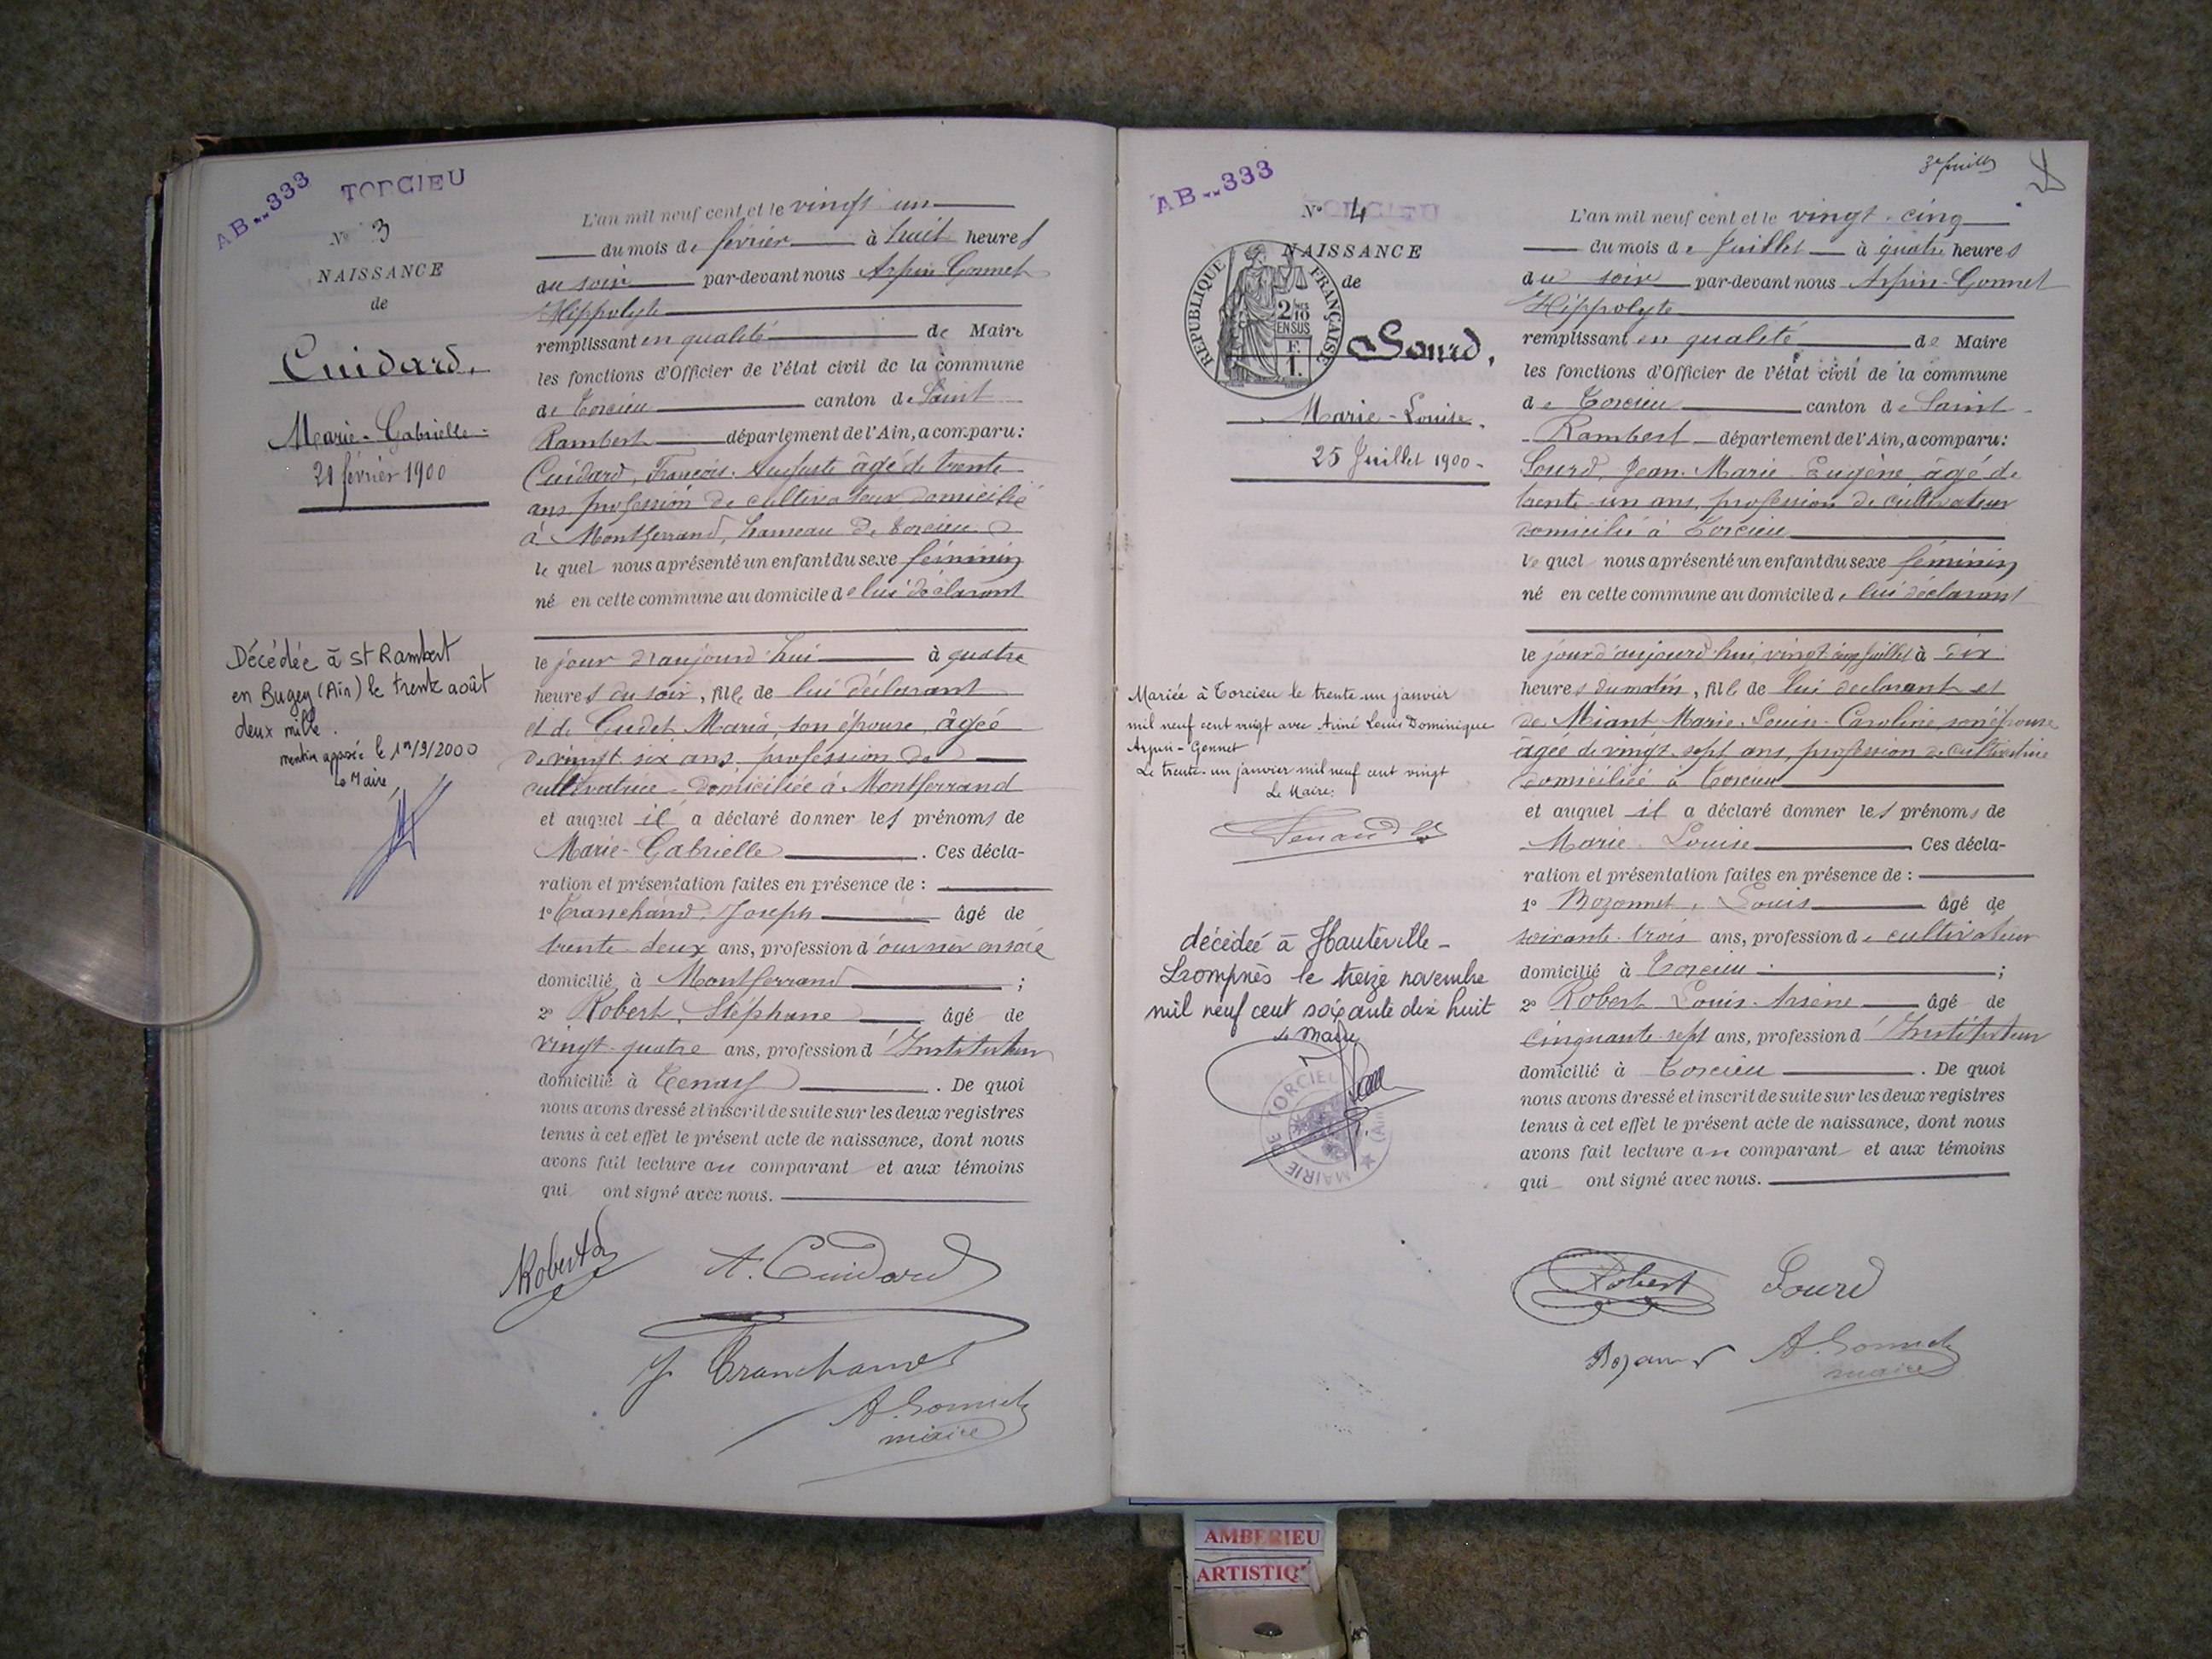 AB...333 TORCIEU
N° 3
NAISSANCE
de
Cuidard,
Marie-Gabrielle-
21 février 1900
Décédée à St Rambert
en Bugey (Ain) le trente août
deux mille.
mention apposée le 1er/9/2000
Le Maire,
L'an mil neuf cent et le vingt un
du mois de février à huit heures
du soir par-devant nous Arpin-Gonnet
Hippolyte
remplissant en qualité de Maire
les fonctions d'Officier de l'état civil de la commune
de Torcieu canton de Saint
Rambert département de l'Ain, a comparu:
Cuidard, François-Auguste âgé de trente
ans profession de cultivateur domicilié
à Montferrand, hameau de Torcieu
le quel nous a présenté un enfant du sexe féminin
né en cette commune au domicile de lui déclarant
le jour d'aujourd'hui à quatre
heures du soir, fille de lui déclarant
et de Cudet Maria, son épouse, âgée
de vingt six ans profession de
cultivatrice domiciliée à Montferrand
et auquel il a déclaré donner les prénoms de
Marie-Gabrielle. Ces décla-
ration et présentation faites en présence de :
1° Tranchand, Joseph âgé de
trente-deux ans, profession d'ouvrier en soie
domicilié à Montferrand ;
2° Robert, Stéphane âgé de
vingt-quatre ans, profession d'Instituteur
domicilié à Tenay. De quoi
nous avons dressé et inscrit de suite sur les deux registres
tenus à cet effet le présent acte de naissance, dont nous
avons fait lecture au comparant et aux témoins
qui ont signé avec nous.
Robert A. Cuidard
J. Tranchand
A. Gonnet
maire
3e feuille
AB...333
TORCIEU
N° 4
NAISSANCE
de
REPUBLIQUE FRANÇAISE
2/10
EN SUS
F.
1.
Sourd,
Marie-Louise.
25 Juillet 1900-
Mariée à Torcieu le trente un janvier
mil neuf cent vingt avec Aimé Louis Dominique
Arpin-Gonnet
Le trente-un janvier mil neuf cent vingt
Le Maire:
décédée à Hauteville-
Lompnès le treize novembre
mil neuf cent soixante dix huit
Le Maire
MAIRIE DE TORCIEU (Ain)
L'an mil neuf cent et le vingt-cinq
du mois de Juillet à quatre heures
du soir par-devant nous Arpin-Gonnet
Hippolyte
remplissant en qualité de Maire
les fonctions d'Officier de l'état civil de la commune
de Torcieu canton de Saint-
Rambert département de l'Ain, a comparu:
Sourd, Jean-Marie-Eugène âgé de
trente-un ans, profession de cultivateur
domicilié à Torcieu
le quel nous a présenté un enfant du sexe féminin
né en cette commune au domicile de lui déclarant
le jour d'aujourd'hui, vingt-cinq Juillet à dix
heures du matin, fille de lui déclarant et
de Miant Marie-Louise-Caroline, son épouse
âgée de vingt-sept ans, profession de cultivatrice
domiciliée à Torcieu
et auquel il a déclaré donner les prénoms de
Marie-Louise Ces décla-
ration et présentation faites en présence de :
1° Bozonnet, Louis âgé de
soixante-trois ans, profession de cultivateur
domicilié à Torcieu ;
2° Robert Louis-Arsène âgé de
cinquante-sept ans, profession d'Instituteur
domicilié à Torcieu. De quoi
nous avons dressé et inscrit de suite sur les deux registres
tenus à cet effet le présent acte de naissance, dont nous
avons fait lecture au comparant et aux témoins
qui ont signé avec nous.
Robert Sourd
A. Gonnet
maire
AMBERIEU
ARTISTIQ